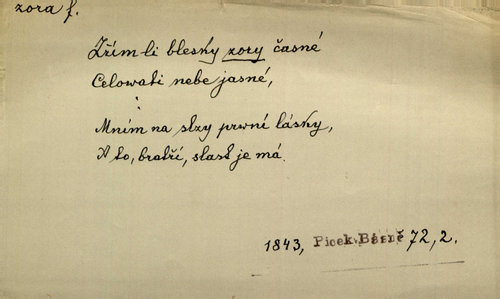 zora f.
Zřím-li blesky zory časné
Celowati nebe jasné,
:
Mním na slzy prwní lásky,
A to, bratří, slast je má.
1843, Picek Básně 72, 2.